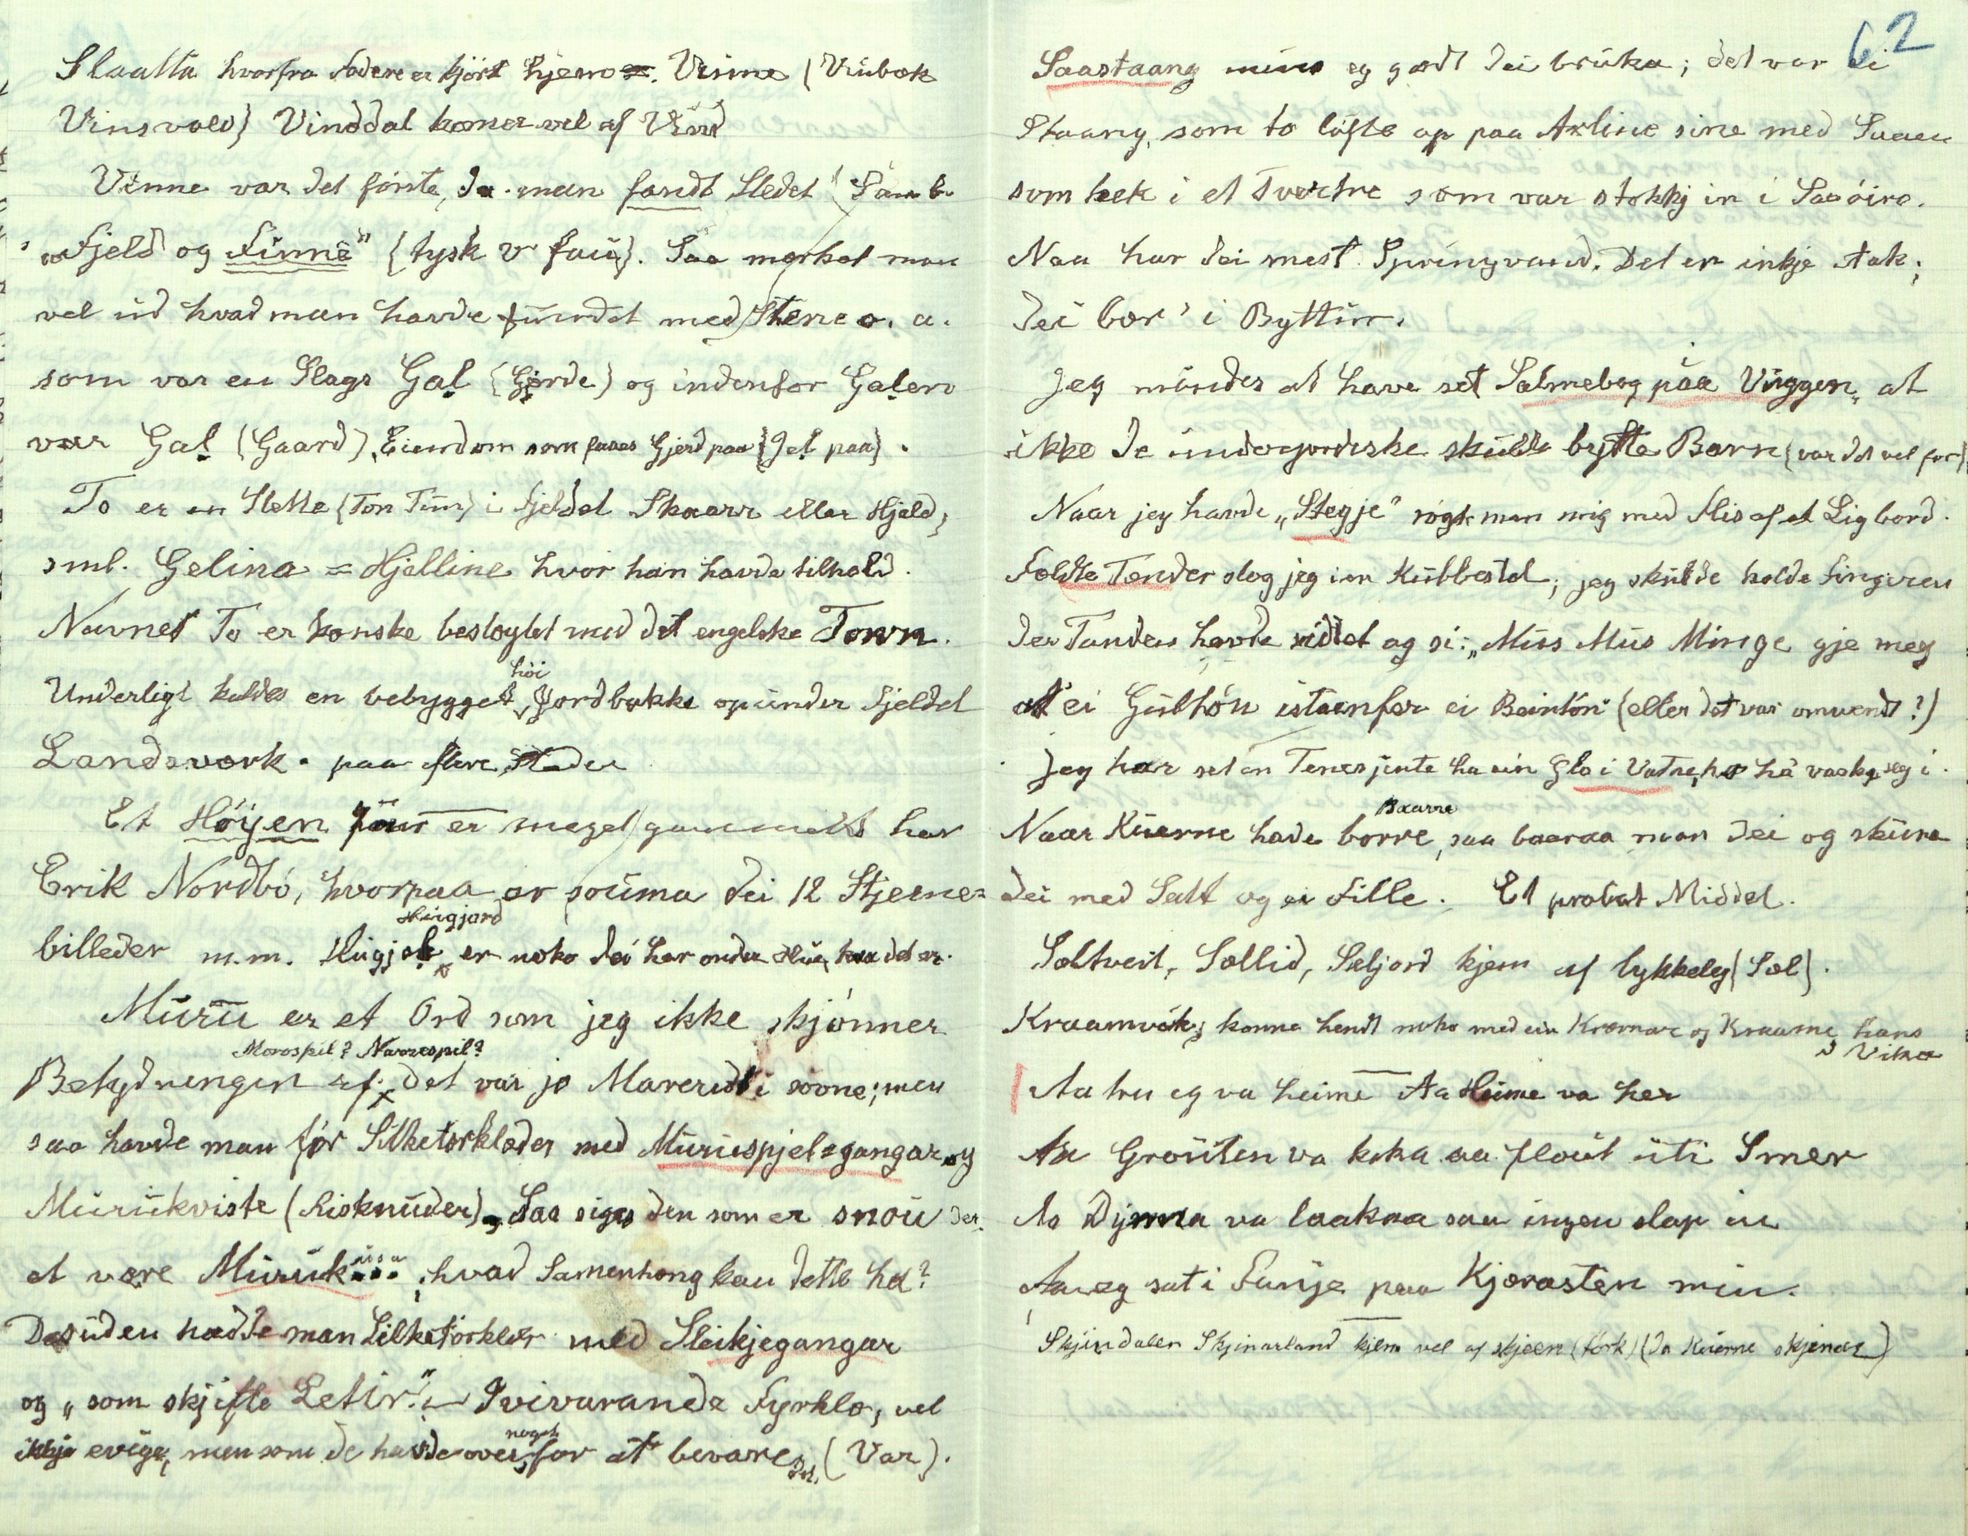 Slaatta hvorfra Foderet er kjört hjem =. Vinne (Vinbæk
Vinsvold) Vinddal komer vel af Vind
Vinne var det förste, da man fandt Stedet (Samb.
"Fjeld og Finne" (tysk v. ). Saa merket man
vel ud hvad man havde fundet med Stene o. a.
som var en Slags Gal (Gjærde) og indenfor Galen
var Gal (Gaard), Eiendom som faaes Gjerd paa (Jel paa).
To er en Slette (Ton Tun) i Fjeldet Skaarr eller Hjeld;
sml. Gelina = Hjelline hvor han havde tilhold.
Navnet To er kanske beslægtet med det engelske Town.
Underligt kaldes en bebygget höi Jordbakke opunder Fjeldet
Landsværk. paa flere Steder
Et Höyen er meget gammelt har
Erik Nordbö, hvorpaa er souma dei 12 Stjerne-
billeder m.m. Hugjal Hugjard er noko dei har onder Hue, kva det er.
Muru er et Ord som jeg ikke skjönner
Morospil? Narrespil?
Betydningen af; det var jo Mareridt i sövne; men
saa havde man för Silketörklæder med Muruspjel=gangar og
Murukviste (Risknuder), Saa siges den som er snou der-
at være Murukusu; hvad Samenhæng kan dette ha?
Desuden hadde man Silketörklær med Sleikjegangar
og "som skjifte Letir" Ivivarande Fyrklæ, vel
ikkje evige, men som de havde over noget for at bevare det. (Var).
62
Saastaang mins eg godt dei bruka; det var ei
Staang, som to löfte op paa Axline sine med Saaen
som hek i et Tvertre som var stokkj in i Saaöiro.
Naa har dei mest Springvand. Det er inkje Tak;
dei bær' i Byttun.
Jeg mindes at have set Salmebog paa Vuggen, at
ikke de underjordiske skulde bytte Barn (var det vel for)
Naar jeg havde "Stegje" rögte man mig med Flis af et Ligbord.
Fældte Tænder slog jeg i en Kubbestol; jeg skulde holde Fingren
der Tanden havde siddet og si: "Mus Mus Minge gje meg
ei Gultön istaenfor ei Beintön" (eller det var omvendt?)
Jeg har set en Tenesjente ha ein Glo i Vatne, ho hå vaska seg i.
Naar Kuerne hade borre Baarne, saa baaraa man dei og skura
dei med Salt og ei Fille. Et probat Middel.
Sæltveit, Sællid, Seljord kjem af lykkeleg (Sæl).
Kraamvik; konna hendt noko med ein Kræmar og Kraame hans
i Vika
Aa tru eg va heime Aa Heime va her
Aa Gröuten va koka aa flout uti Smer
Aa Dynna va laakna saa ingen slap in
Aa eg sat i Funje paa Kjæresten min.
Skjindalen Skjinarland kjem vel af skjeen (törk) (da Kuerne skjenar)